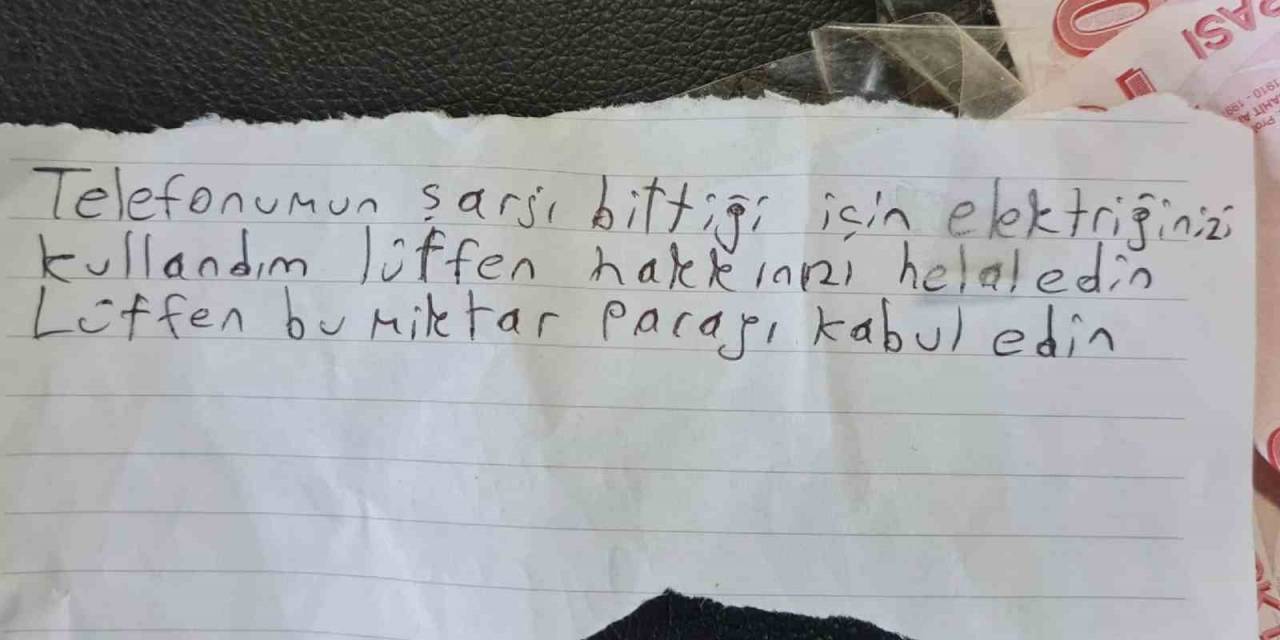 Telefonumun şarjı bittiği için elektriğinizi
kullandım lütfen hakkınızı helal edin
Lütfen bu miktar parayı kabul edin
0
PASI